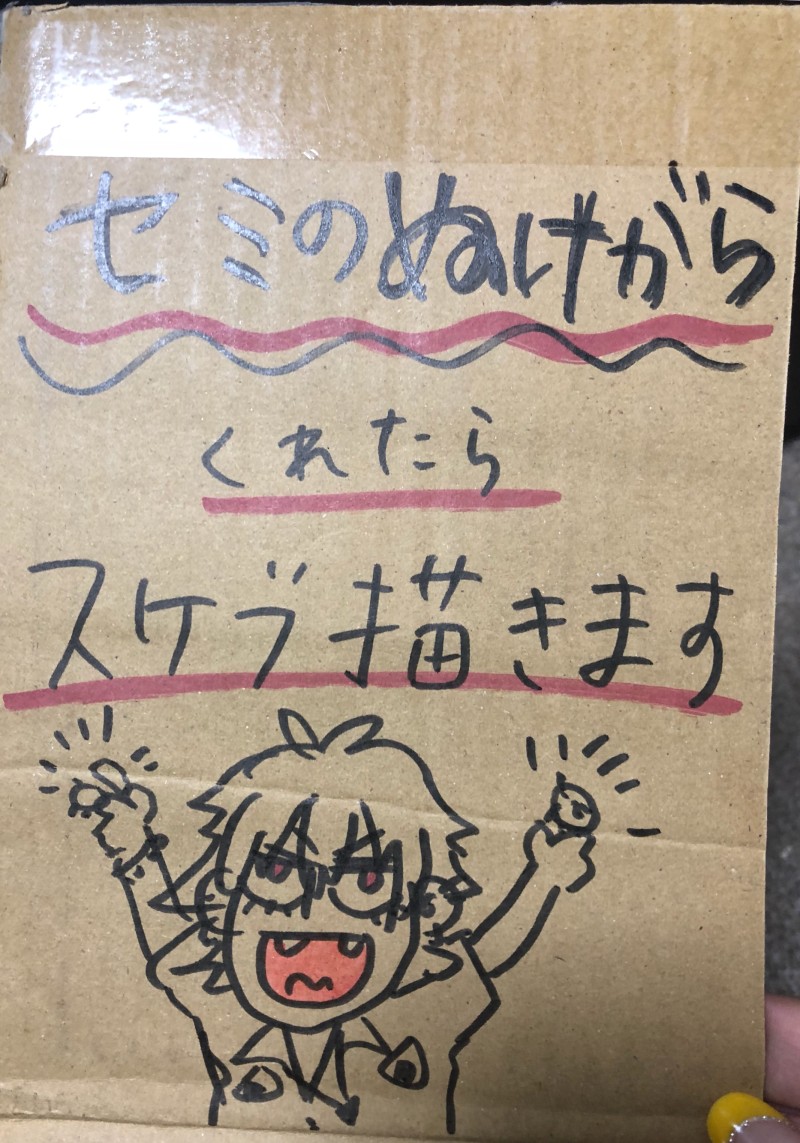 セミのぬけがら
くれたら
スケブ描きます